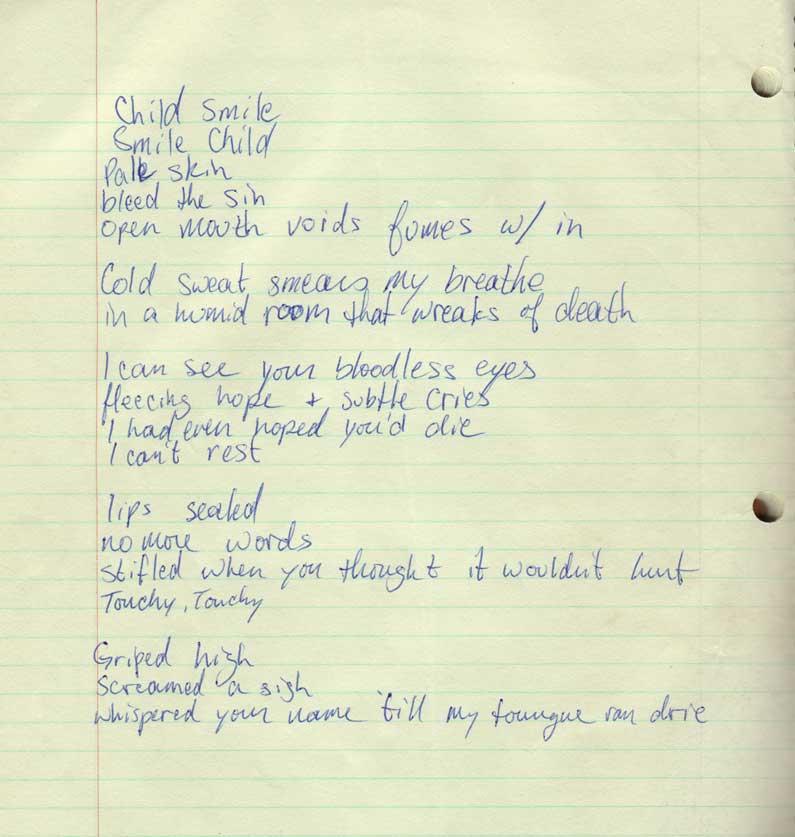 Child Smile
Smile Child
Pale skin
bleed the sin
open mouth voids fumes w/ in
Cold sweat smears my breathe
in a humid room that wreaks of death
I can see your bloodless eyes
fleecing hope + subtle cries
I had even hoped you'd die
I can't rest
lips sealed
no more words
stifled when you thought it wouldn't hurt
Touchy, Touchy
Griped high
screamed a sigh
whispered your name 'till my toungue ran drie